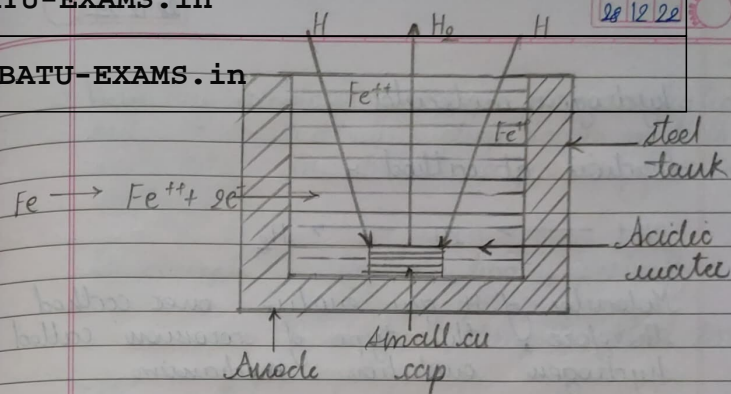 BATU-EXAMS.in
28 12 22
BATU-EXAMS.in
H H2 H
Fe++
Fe+
Steel tank
Fe → Fe++ + 2e-
Acidic water
Anode
Small cu cap